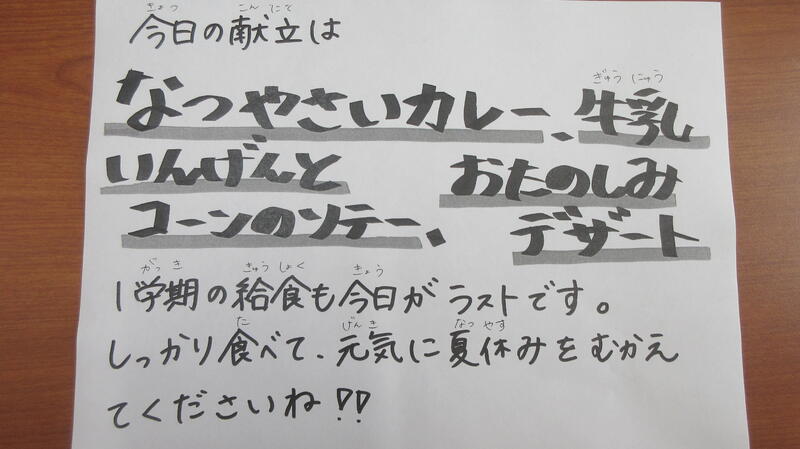 今日の献立は
なつやさいカレー、牛乳
いんげんと おたのしみ
コーンのソテー、デザート
1学期の給食も今日がラストです。
しっかり食べて、元気に夏休みをむかえ
てくださいね!!